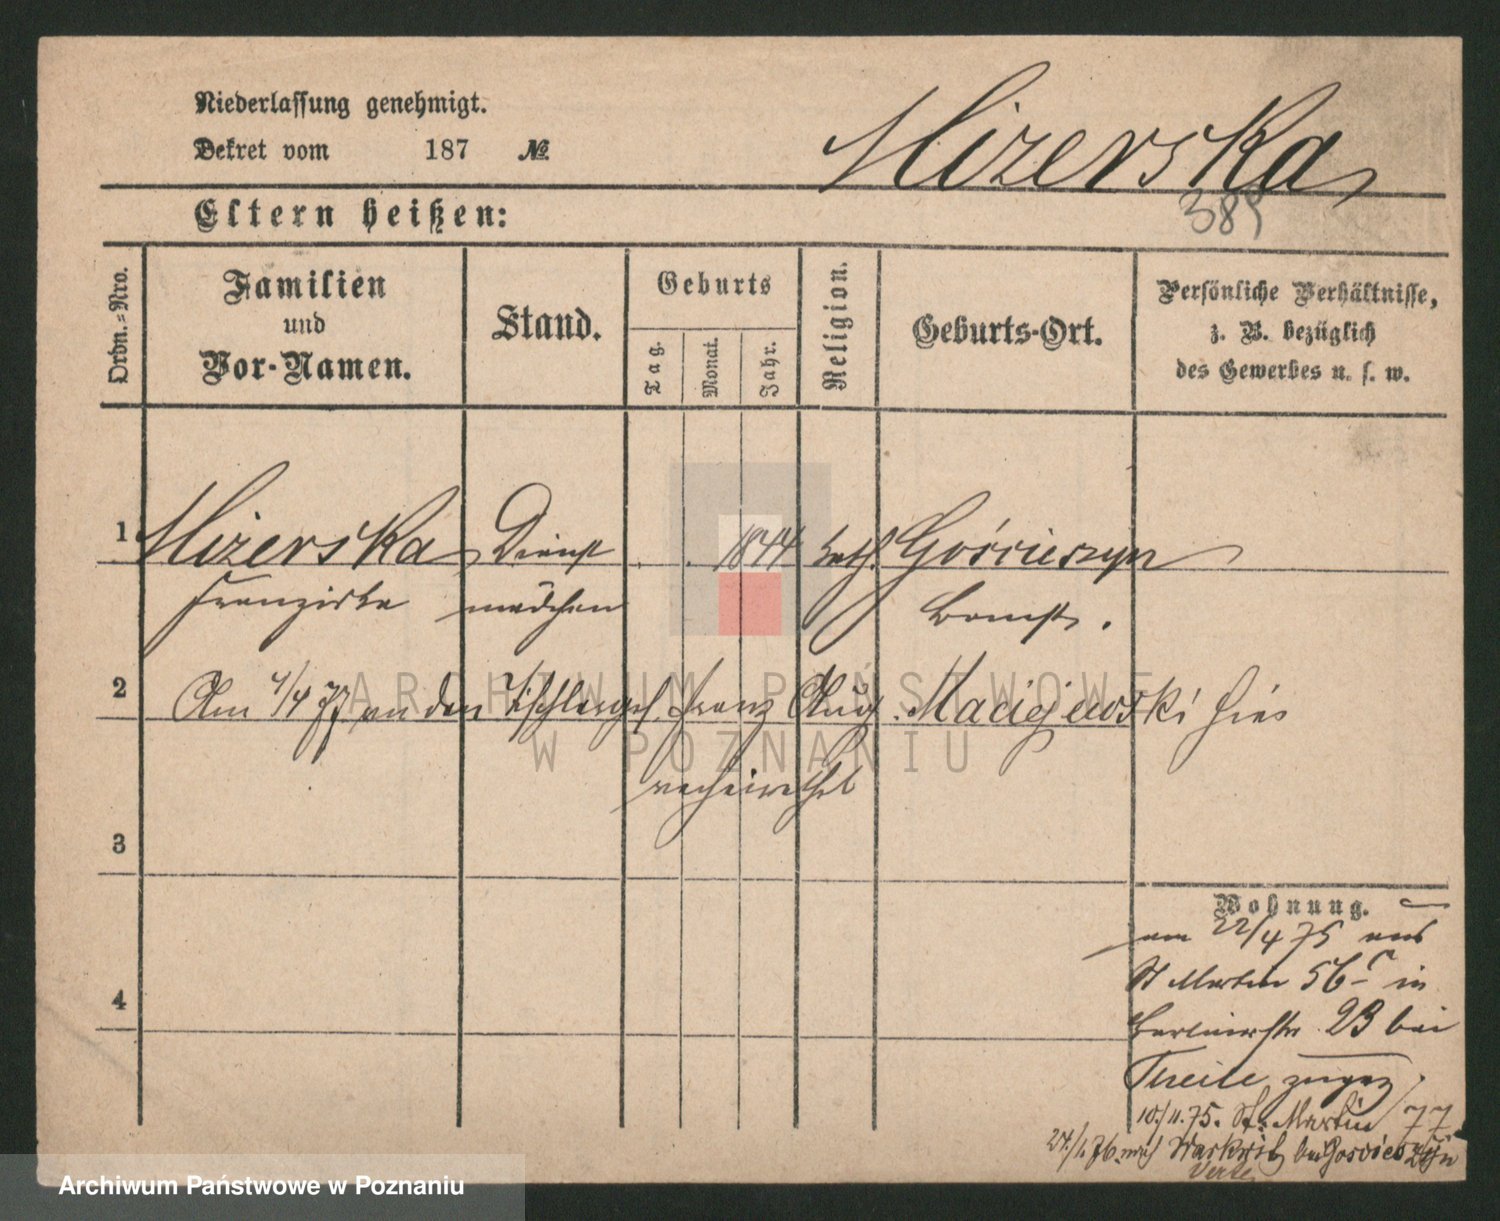 Niederlassung genehmigt.
Dekret vom 187 №
Mizerska
389
Eltern heißen:
Ordn.-Nro.
Familien
und
Vor-Namen.
Stand.
Geburts
Tag.
Monat.
Jahr.
Religion.
Geburts-Ort.
Persönliche Verhältnisse,
z. B. bezüglich
des Gewerbes u. s. w.
1 Mizerska Dienst . . 1844 kath. Gościeszyn
Franziska mädchen Bomst.
2 Am 4/4 77 an den Tischlerges. Franz Aug. Maciejewski hies
verheirathet
3
4
Wohnung.
am 22/4 75 aus
St Martin 56 in
Berlinerstr 23 bei
Theile zugez.
10/11.75. St. Martin 77
27/1 76 nach bei Gościeszyn
Verte
ARCHIWUM PAŃSTWOWE
W POZNANIU
Archiwum Państwowe w Poznaniu